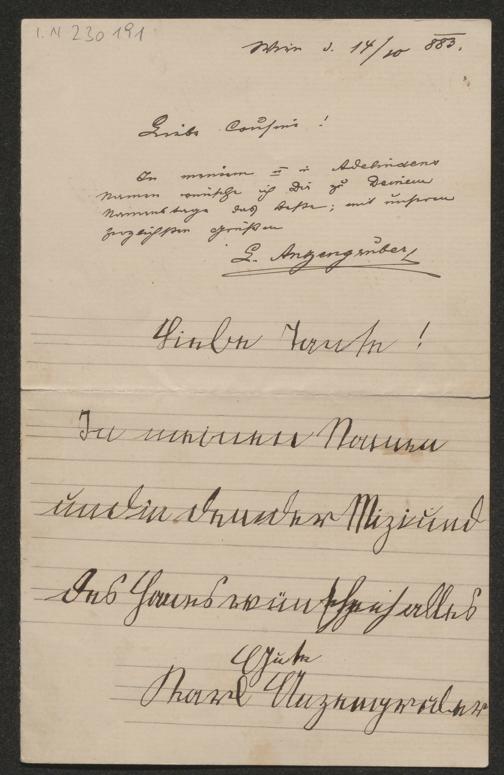 I. N 230191
Wien d. 14/10 883.
Liebe Cousine!
In meinem u Adelindens
Namen wünsche ich Dir zu Deinem
Namenstage das Beste; mit unseren
herzlichsten Grüßen
L. Anzengruber
Liebe Tante!
In meinen Namen
und in den der Mizi und
des Hans wünsche ich alles
Gute
Karl Anzengruber